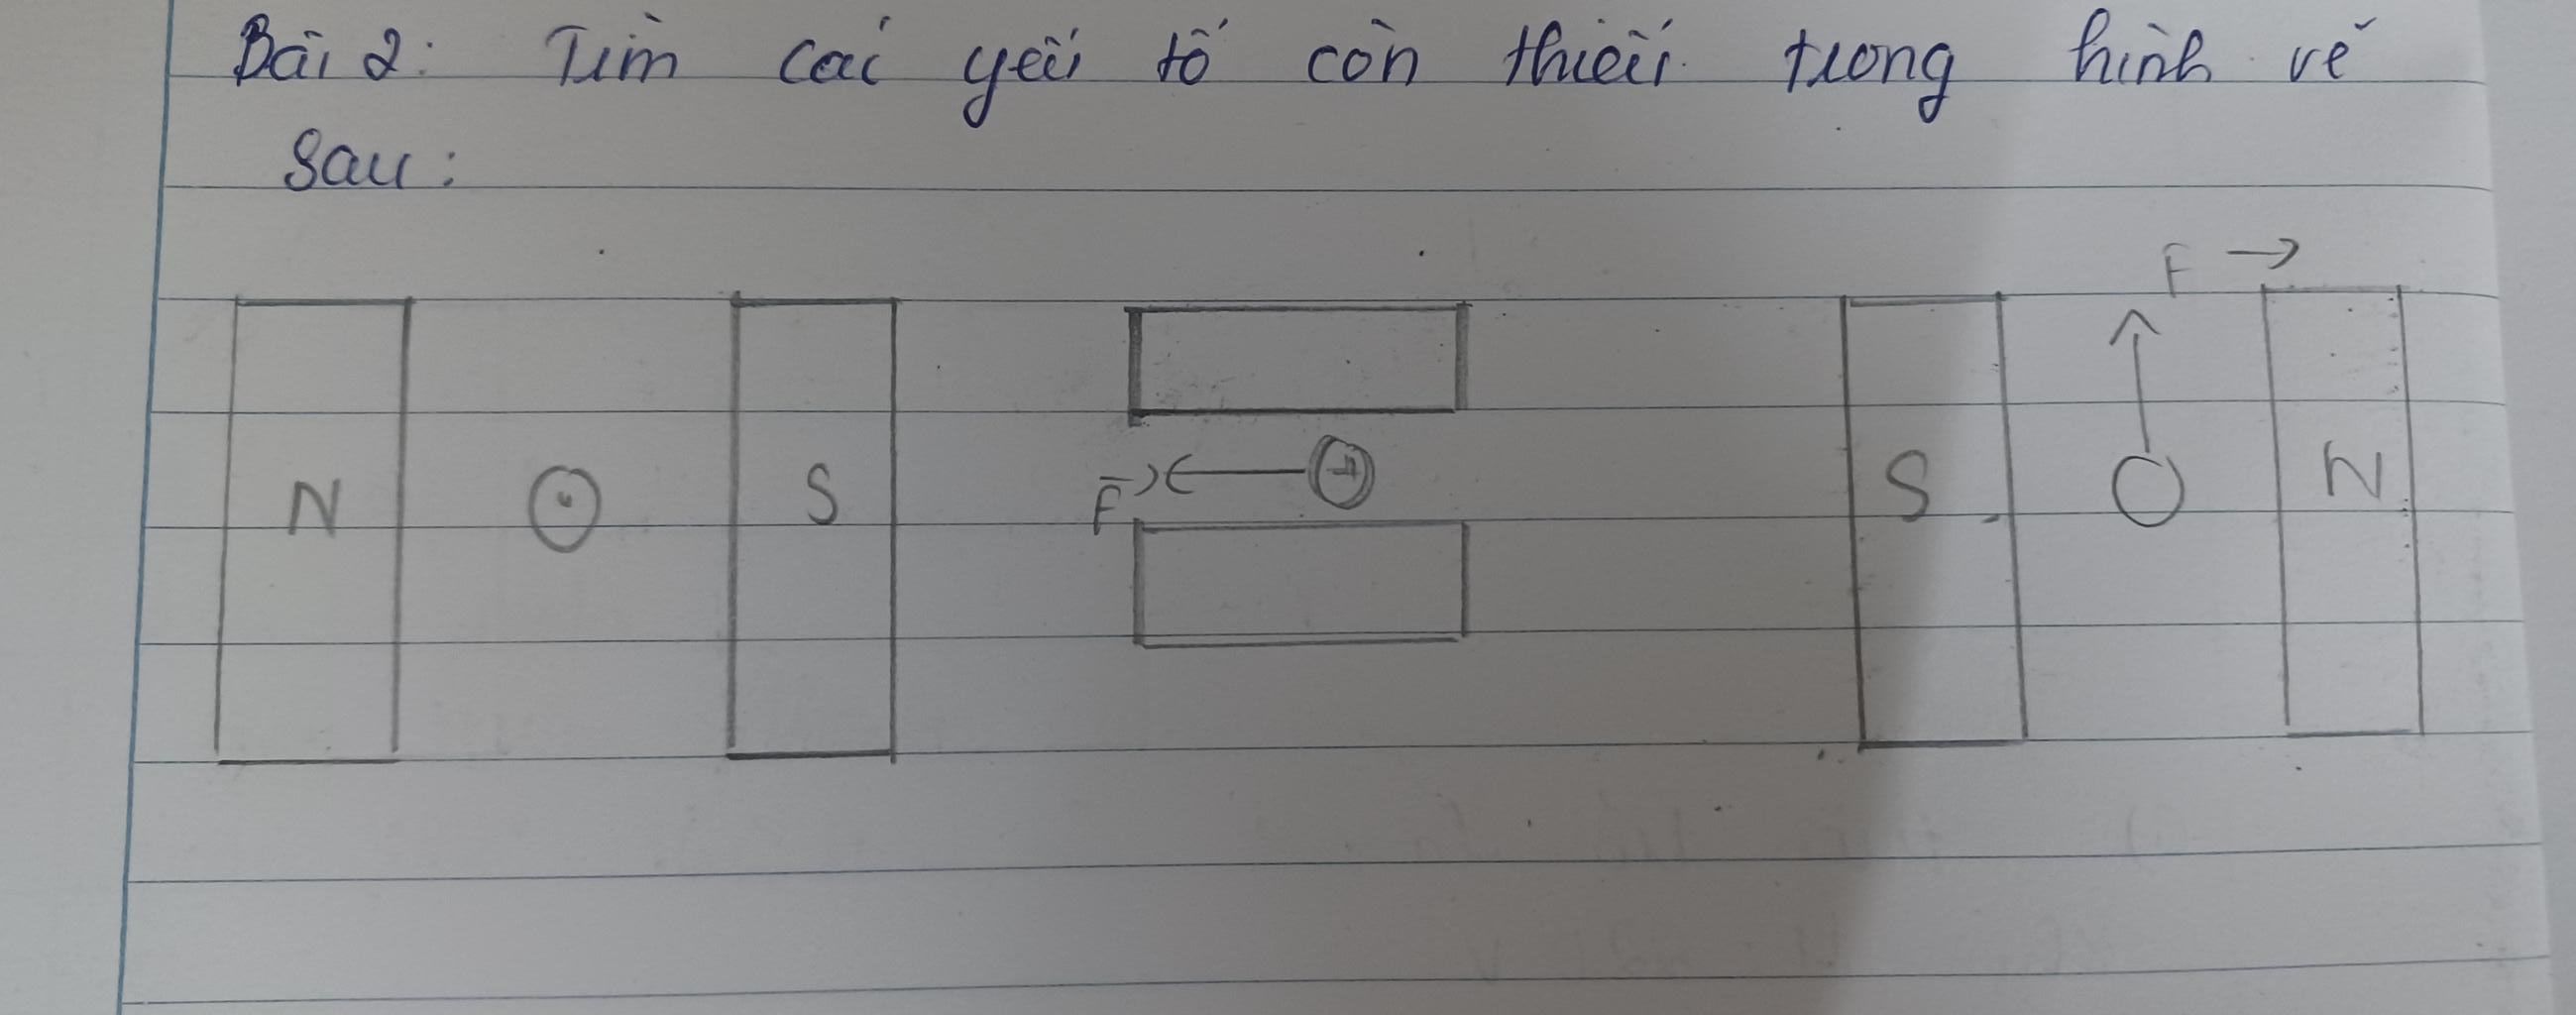 Bài 2: Tìm các yếu tố còn thiếu trong hình vẽ
sau:
F →
N S F S N